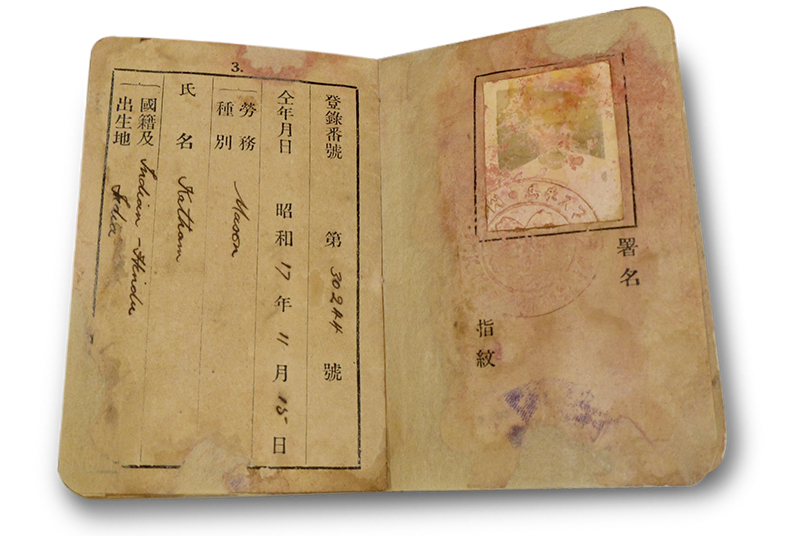 3.
登錄番號 第 30244 號
仝年月日 昭和 17 年 11 月 15 日
勞務
種別 Mason
氏名 Natham
國籍及
出生地 Indian - Hindu
India
署名
指紋